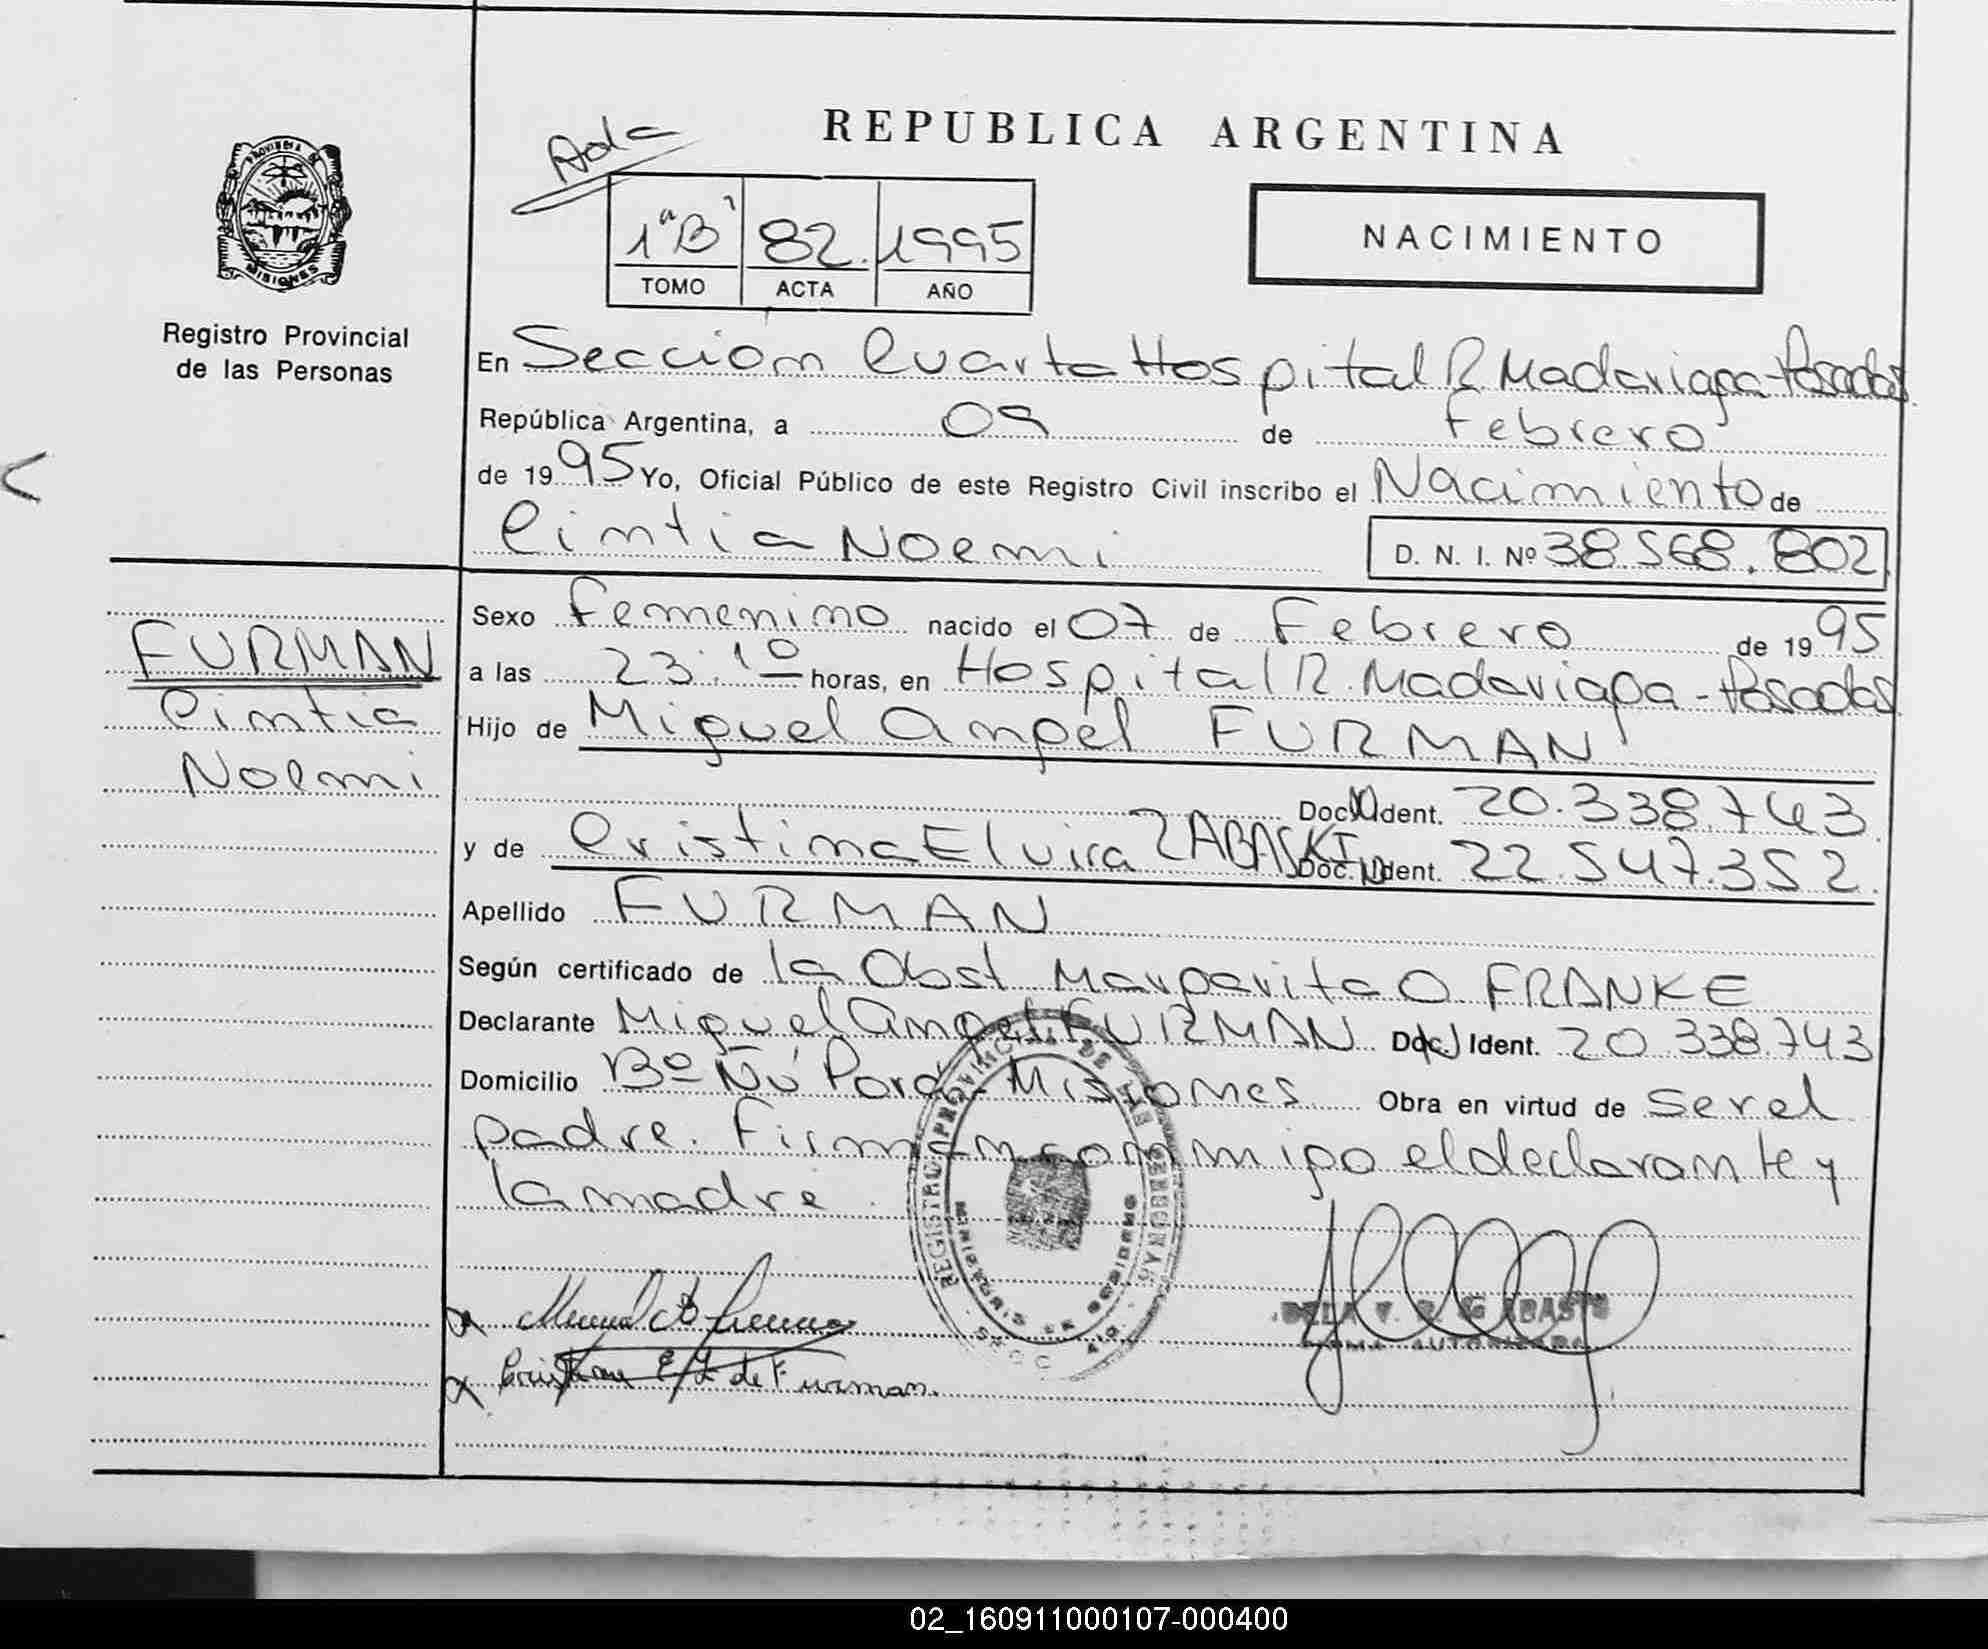 REPUBLICA ARGENTINA
PROVINCIA DE
MISIONES
Registro Provincial
de las Personas
1ª"B" 82. 1995
TOMO ACTA AÑO
NACIMIENTO
En Sección Cuarta Hospital R Madariaga-Posadas
República Argentina, a 09 de Febrero
de 1995 Yo, Oficial Público de este Registro Civil inscribo el Nacimiento de
Cintia Noemi D. N. I. Nº 38.568.802
Sexo Femenino nacido el 07 de Febrero de 1995
FURMAN
Cintia
Noemi
a las 23:10 horas, en Hospital R. Madariaga-Posadas
Hijo de Miguel Angel FURMAN
Doc. Ident. 20.338.743
y de Cristina Elvira ZABASKI Doc. Ident. 22.547.352
Apellido FURMAN
Según certificado de la Obst Margarita O FRANKE
Declarante Miguel Angel FURMAN Doc. Ident. 20.338.743
Domicilio Bº Ñú Porá-Misiones Obra en virtud de ser el
padre. Firman conmigo el declarante y
la madre.
REGISTRO PROVINCIAL DE LAS PERSONAS
Cristina E Z de Furman.
FIRMA AUTORIZADA
02_160911000107-000400